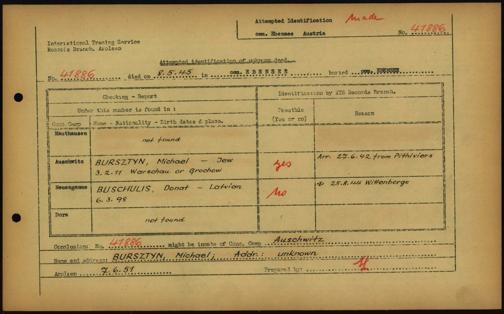 Attempted Identification made
cem. Ebensee Austria No. 41886
International Tracing Service
Records Branch, Arolsen
Attempted identification of unknown dead.
No. 41886 died on 8.5.45 in cem. EBENSEE buried cem. EBENSEE
Checking - Report
Identifications by ITS Records Branch.
Under this number is found in:
Possible (Yes or no)
Reason
Conc. Camp Name - Nationality - Birth dates & place.
Mauthausen not found
Auschwitz BURSZTYN, Michael - Jew yes Arr. 27.6.42 from Pithiviers
3.2.11 Warschau or Grochow
Neuengamme BUSCHULIS, Donat - Latvian no 25.8.44 Wittenberge
6.3.98
Dora not found
Conclusion: No. 41886 might be inmate of Conc. Camp Auschwitz
Name and address: BURSZTYN, Michael, Addr: unknown
Arolsen 7.6.51 Prepared by: